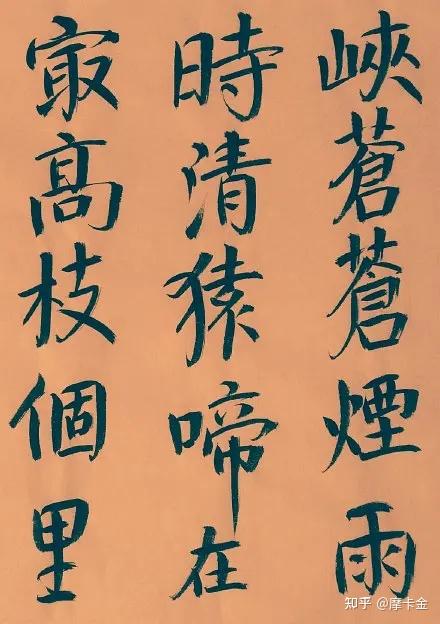 峽蒼蒼煙雨
時清猿啼在
冣高枝個里
知乎 @摩卡金